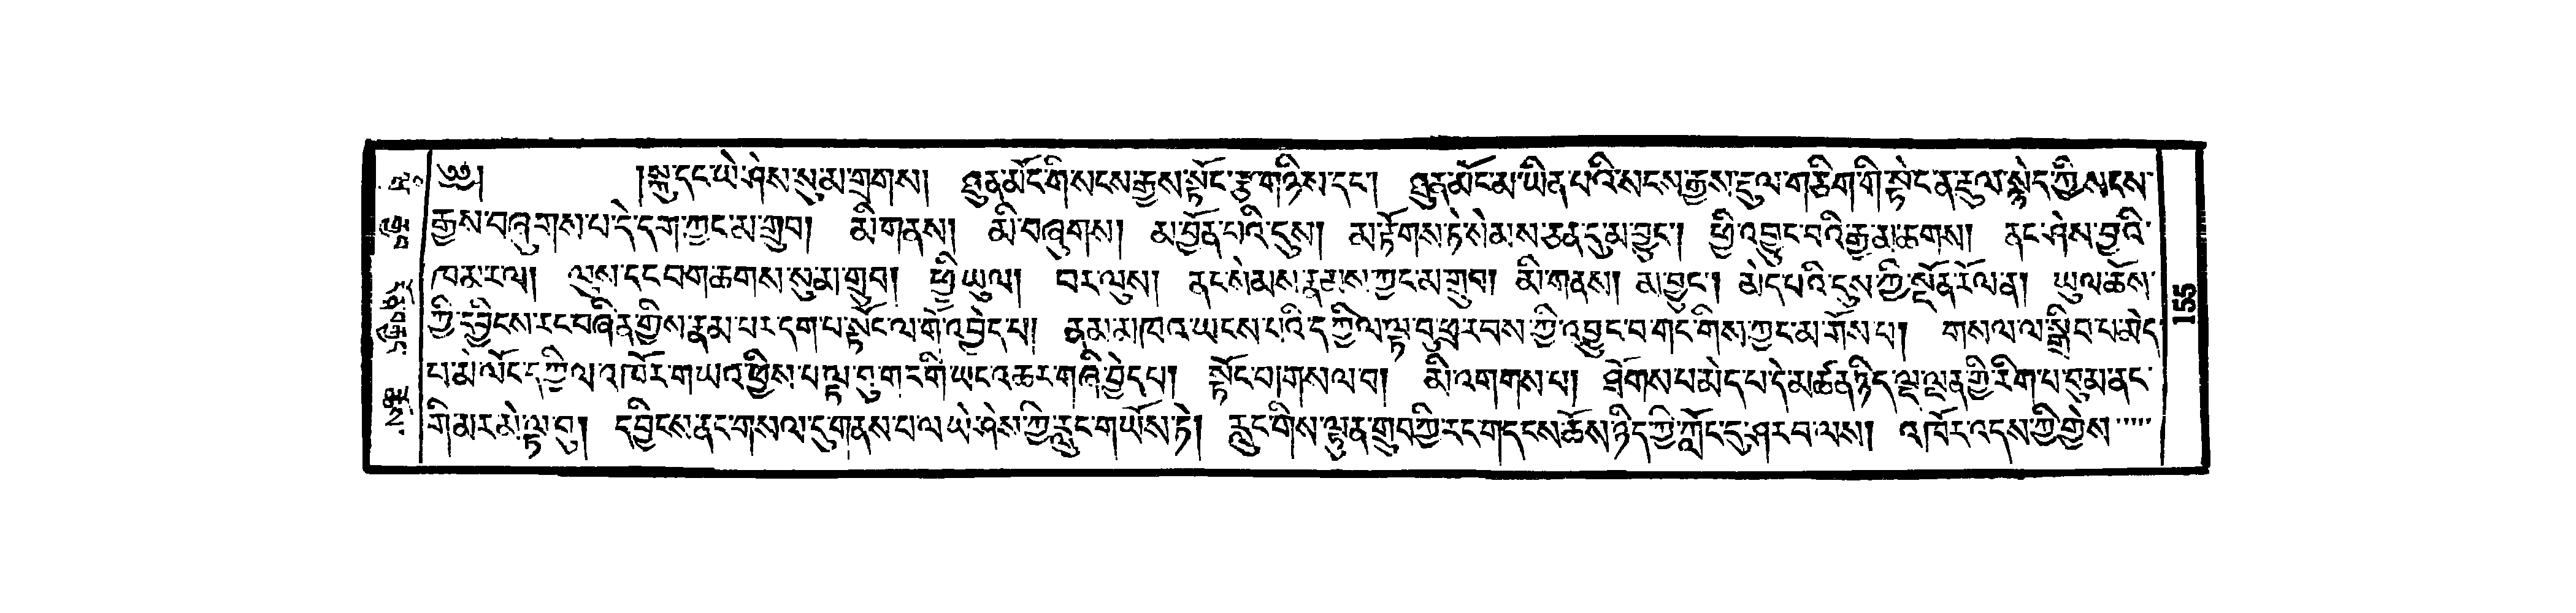 ༄༅། །སྐུ་དང་ཡེ་ཤེས་སུ་མ་གྲགས། ཐུན་མོང་གི་སངས་རྒྱས་སྟོང་རྩ་གཉིས་དང་། ཐུན་མོང་མ་ཡིན་པའི་སངས་རྒྱས་རྡུལ་གཅིག་གི་སྟེང་ན་རྡུལ་སྙེད་ཀྱི་སངས་
རྒྱས་བཞུགས་པ་དེ་དག་ཀྱང་མ་གྲུབ། མི་གནས། མི་བཞུགས། མ་བྱོན་པའི་དུས། མ་རྟོགས་ཏེ་སེམས་ཅན་དུ་མ་བྱུང་། ཕྱི་འབྱུང་བའི་རྒྱན་ཆགས། ནང་ཤེས་བྱའི་
ཁམ་རལ། ལུས་དང་བག་ཆགས་སུ་མ་གྲུབ། ཕྱི་ཡུལ། བར་ལུས། ནང་སེམས་རྣམས་ཀྱང་མ་གྲུབ། མི་གནས། མ་བྱུང་། མེད་པའི་དུས་ཀྱི་སྔོན་རོལ་ན། ཡུལ་ཆོས་
ཀྱི་དབྱིངས་རང་བཞིན་གྱིས་རྣམ་པར་དག་པ་སྟོང་ལ་གོ་འབྱེད་པ། ནམ་མཁའ་ཡངས་པའི་དཀྱིལ་ལྟ་བུ་ཕྲ་རབས་ཀྱི་འབྱུང་བ་གང་གིས་ཀྱང་མ་གོས་པ། གསལ་ལ་སྒྲིབ་པ་མེད་
པ་མེ་ལོང་དཀྱིལ་འཁོར་གཡའ་ཕྱིས་པ་ལྟ་བུ་གང་གི་ཡང་འཆར་གཞི་བྱེད་པ། སྟོང་བ།གསལ་བ། མི་འགགས་པ། ཐོགས་པ་མེད་པ་དེ་མཚན་ཉིད་ལྔ་ལྡན་གྱི་རིག་པ་བུམ་ནང་
གི་མར་མེ་ལྟ་བུ། དབྱིངས་ནང་གསལ་དུ་གནས་པ་ལ་ཡེ་ཤེས་ཀྱི་རླུང་གཡོས་ཏེ། རླུང་གིས་ལྷུན་གྲུབ་ཀྱི་རང་གདངས་ཆོས་ཉིད་ཀྱི་ཀློང་དུ་ཤར་བ་ལས། འཁོར་འདས་ཀྱི་གྱེས་
155